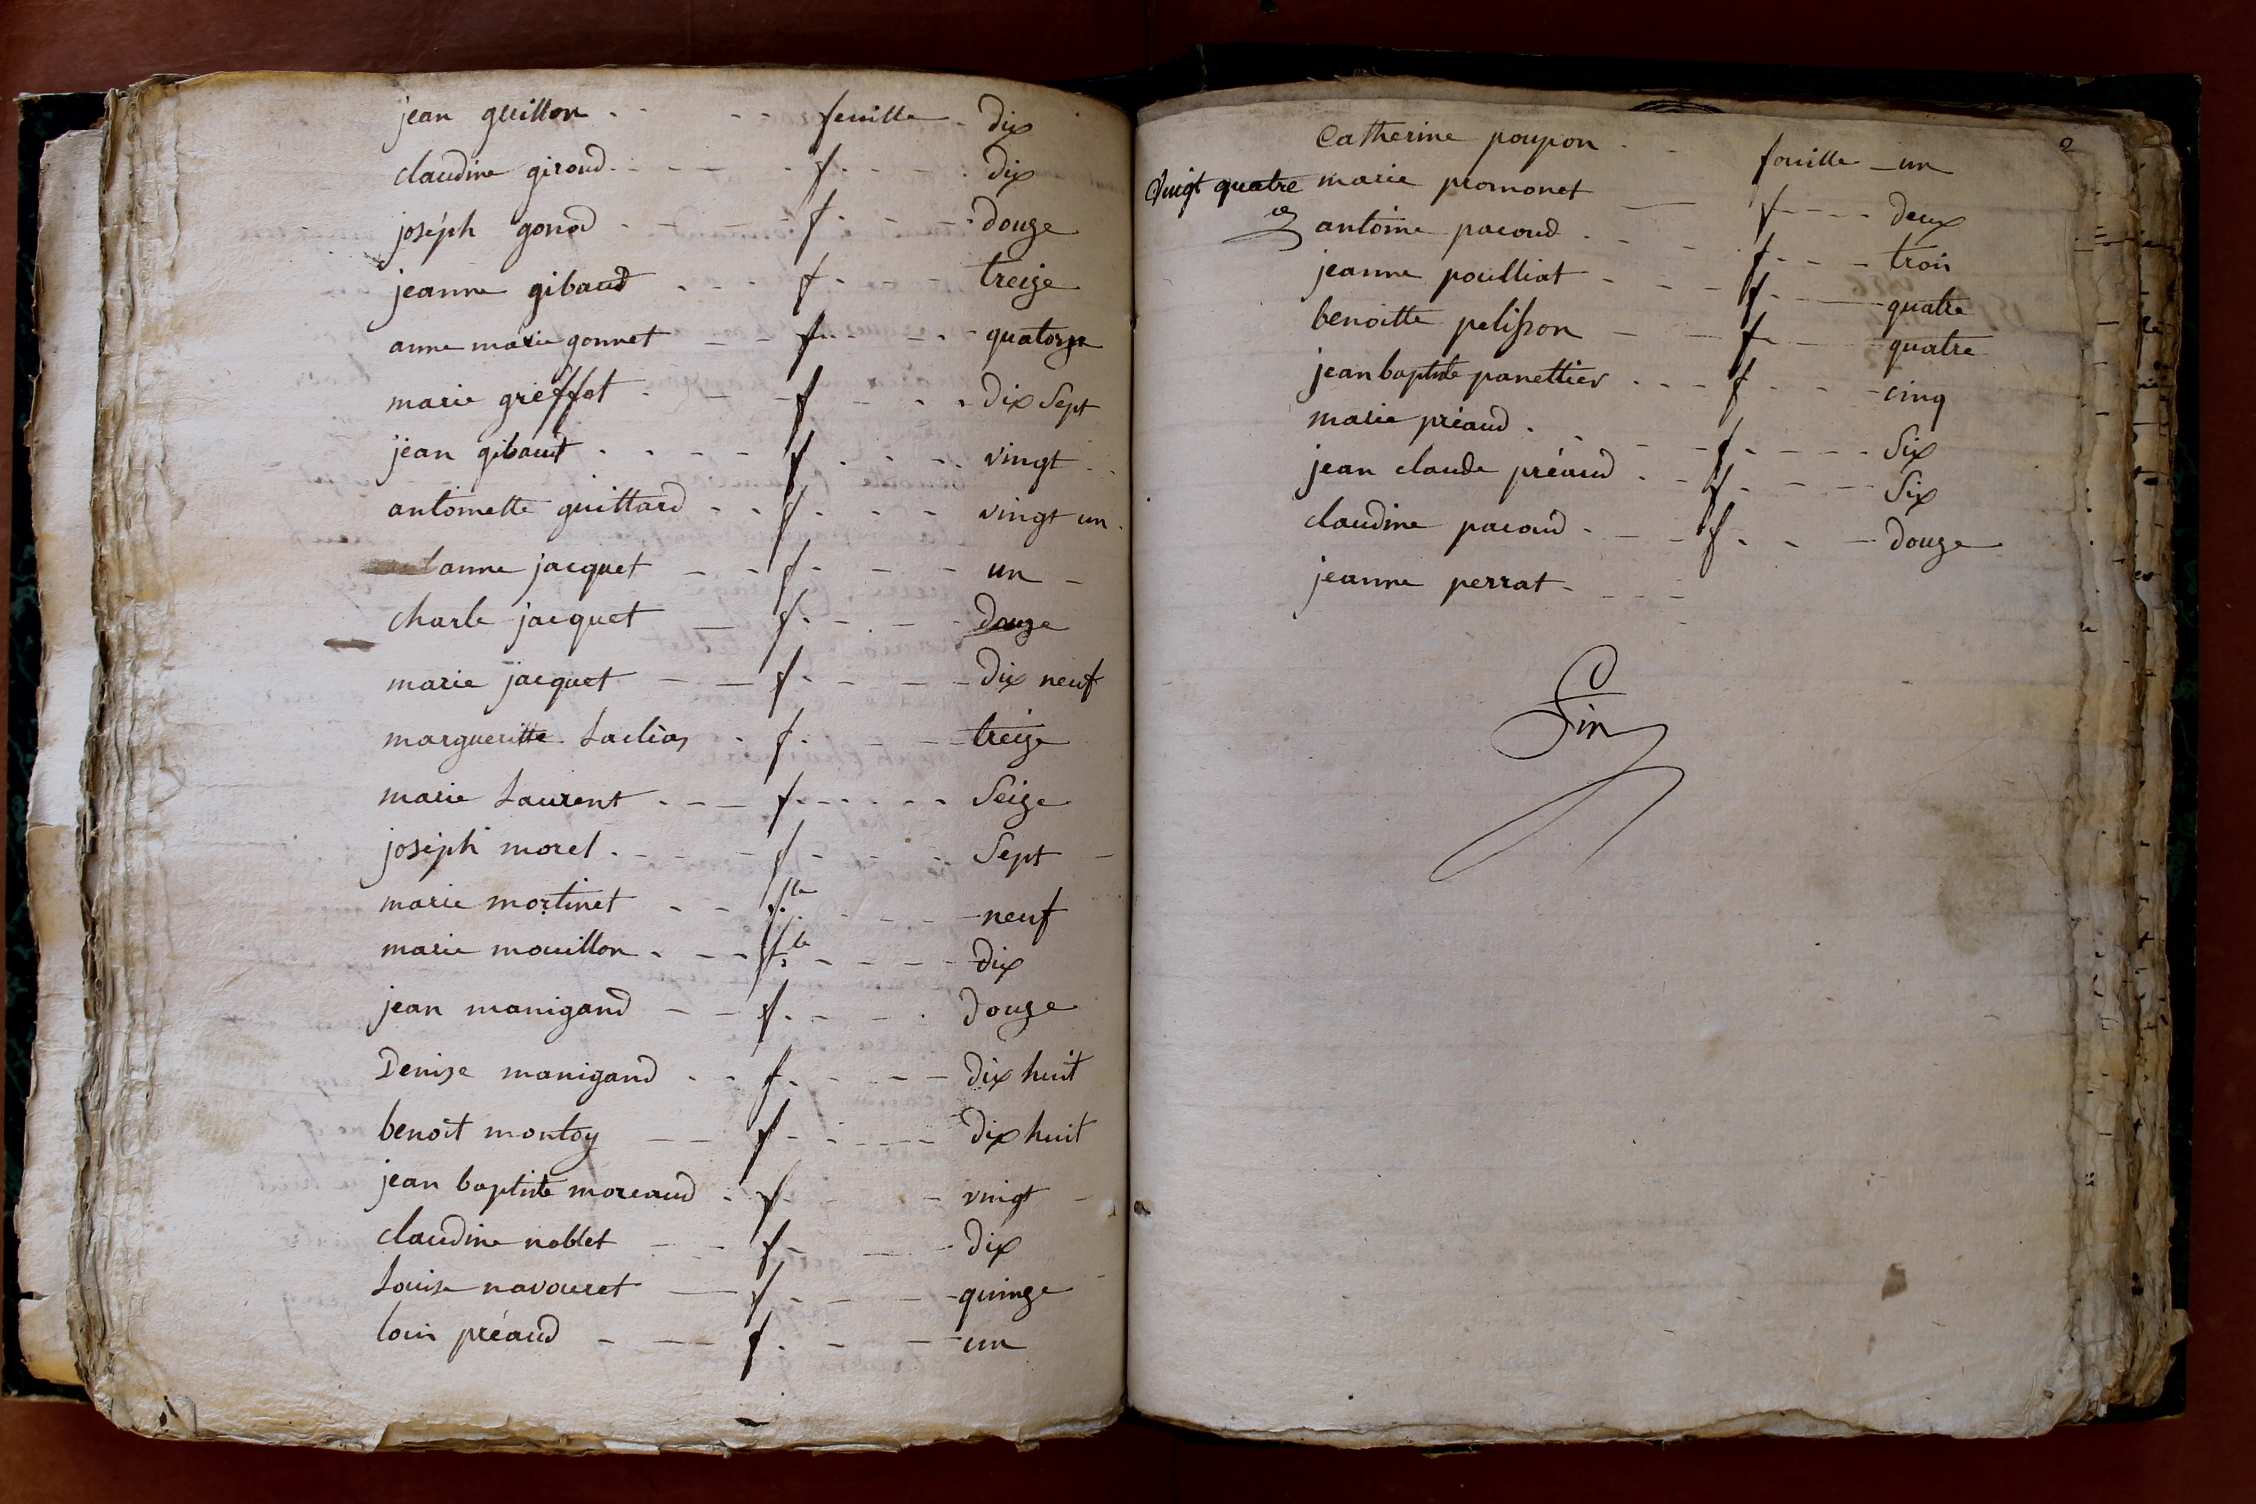 jean guillon . - - - feuille - dix
claudine giroud. - - - - f. - - - . dix
joséph gonod - - - - f. - - - . douze
jeanne gibaud . - - f. - - - treize
anne marie gonnet - - f. - - - - quatorze
marie greffot . - - f - - - dix sept
jean gibaud . . - - f . - - . vingt . .
antoinette guittard - . f. - - - vingt un .
anne jacquet - - f. - - - un -
charle jacquet - f. - . - - douze
marie jacquet - - f. - - - dix neuf
margueritte . f. - - - treize
marie Laurent . - - f. - - - - seize
joséph morel . - - - f - - - - sept -
marie mortinet - - f.le - - - - neuf
marie mouillon . - - - f.le - - - - dix
jean manigand - - f. - - . douze
Denise manigand . - f. - - - - dix huit
benoit montoy - - f - . - - - dix huit
jean baptiste moreaud . f. - - - vingt -
claudine noblet - - f - - - dix
Louise navouret - f . - - - quinze
louis préaud - - - f . - - un
2
Catherine poupon . - feuille - un
vingt quatre marie promonet - f - - - - deux
antoine pacoud . - - - f. - - - trois
jeanne poulliat - - - - f. - - quatre
benoitte pelisson - - f - - quatre
jean baptiste panettier . - - f . - - - cinq
marie préaud . - - - f. - - - - six
jean claude préaud . - f. - - - six
claudine pacoud . - - f. - - douze
jeanne perrat - - - -
Fin